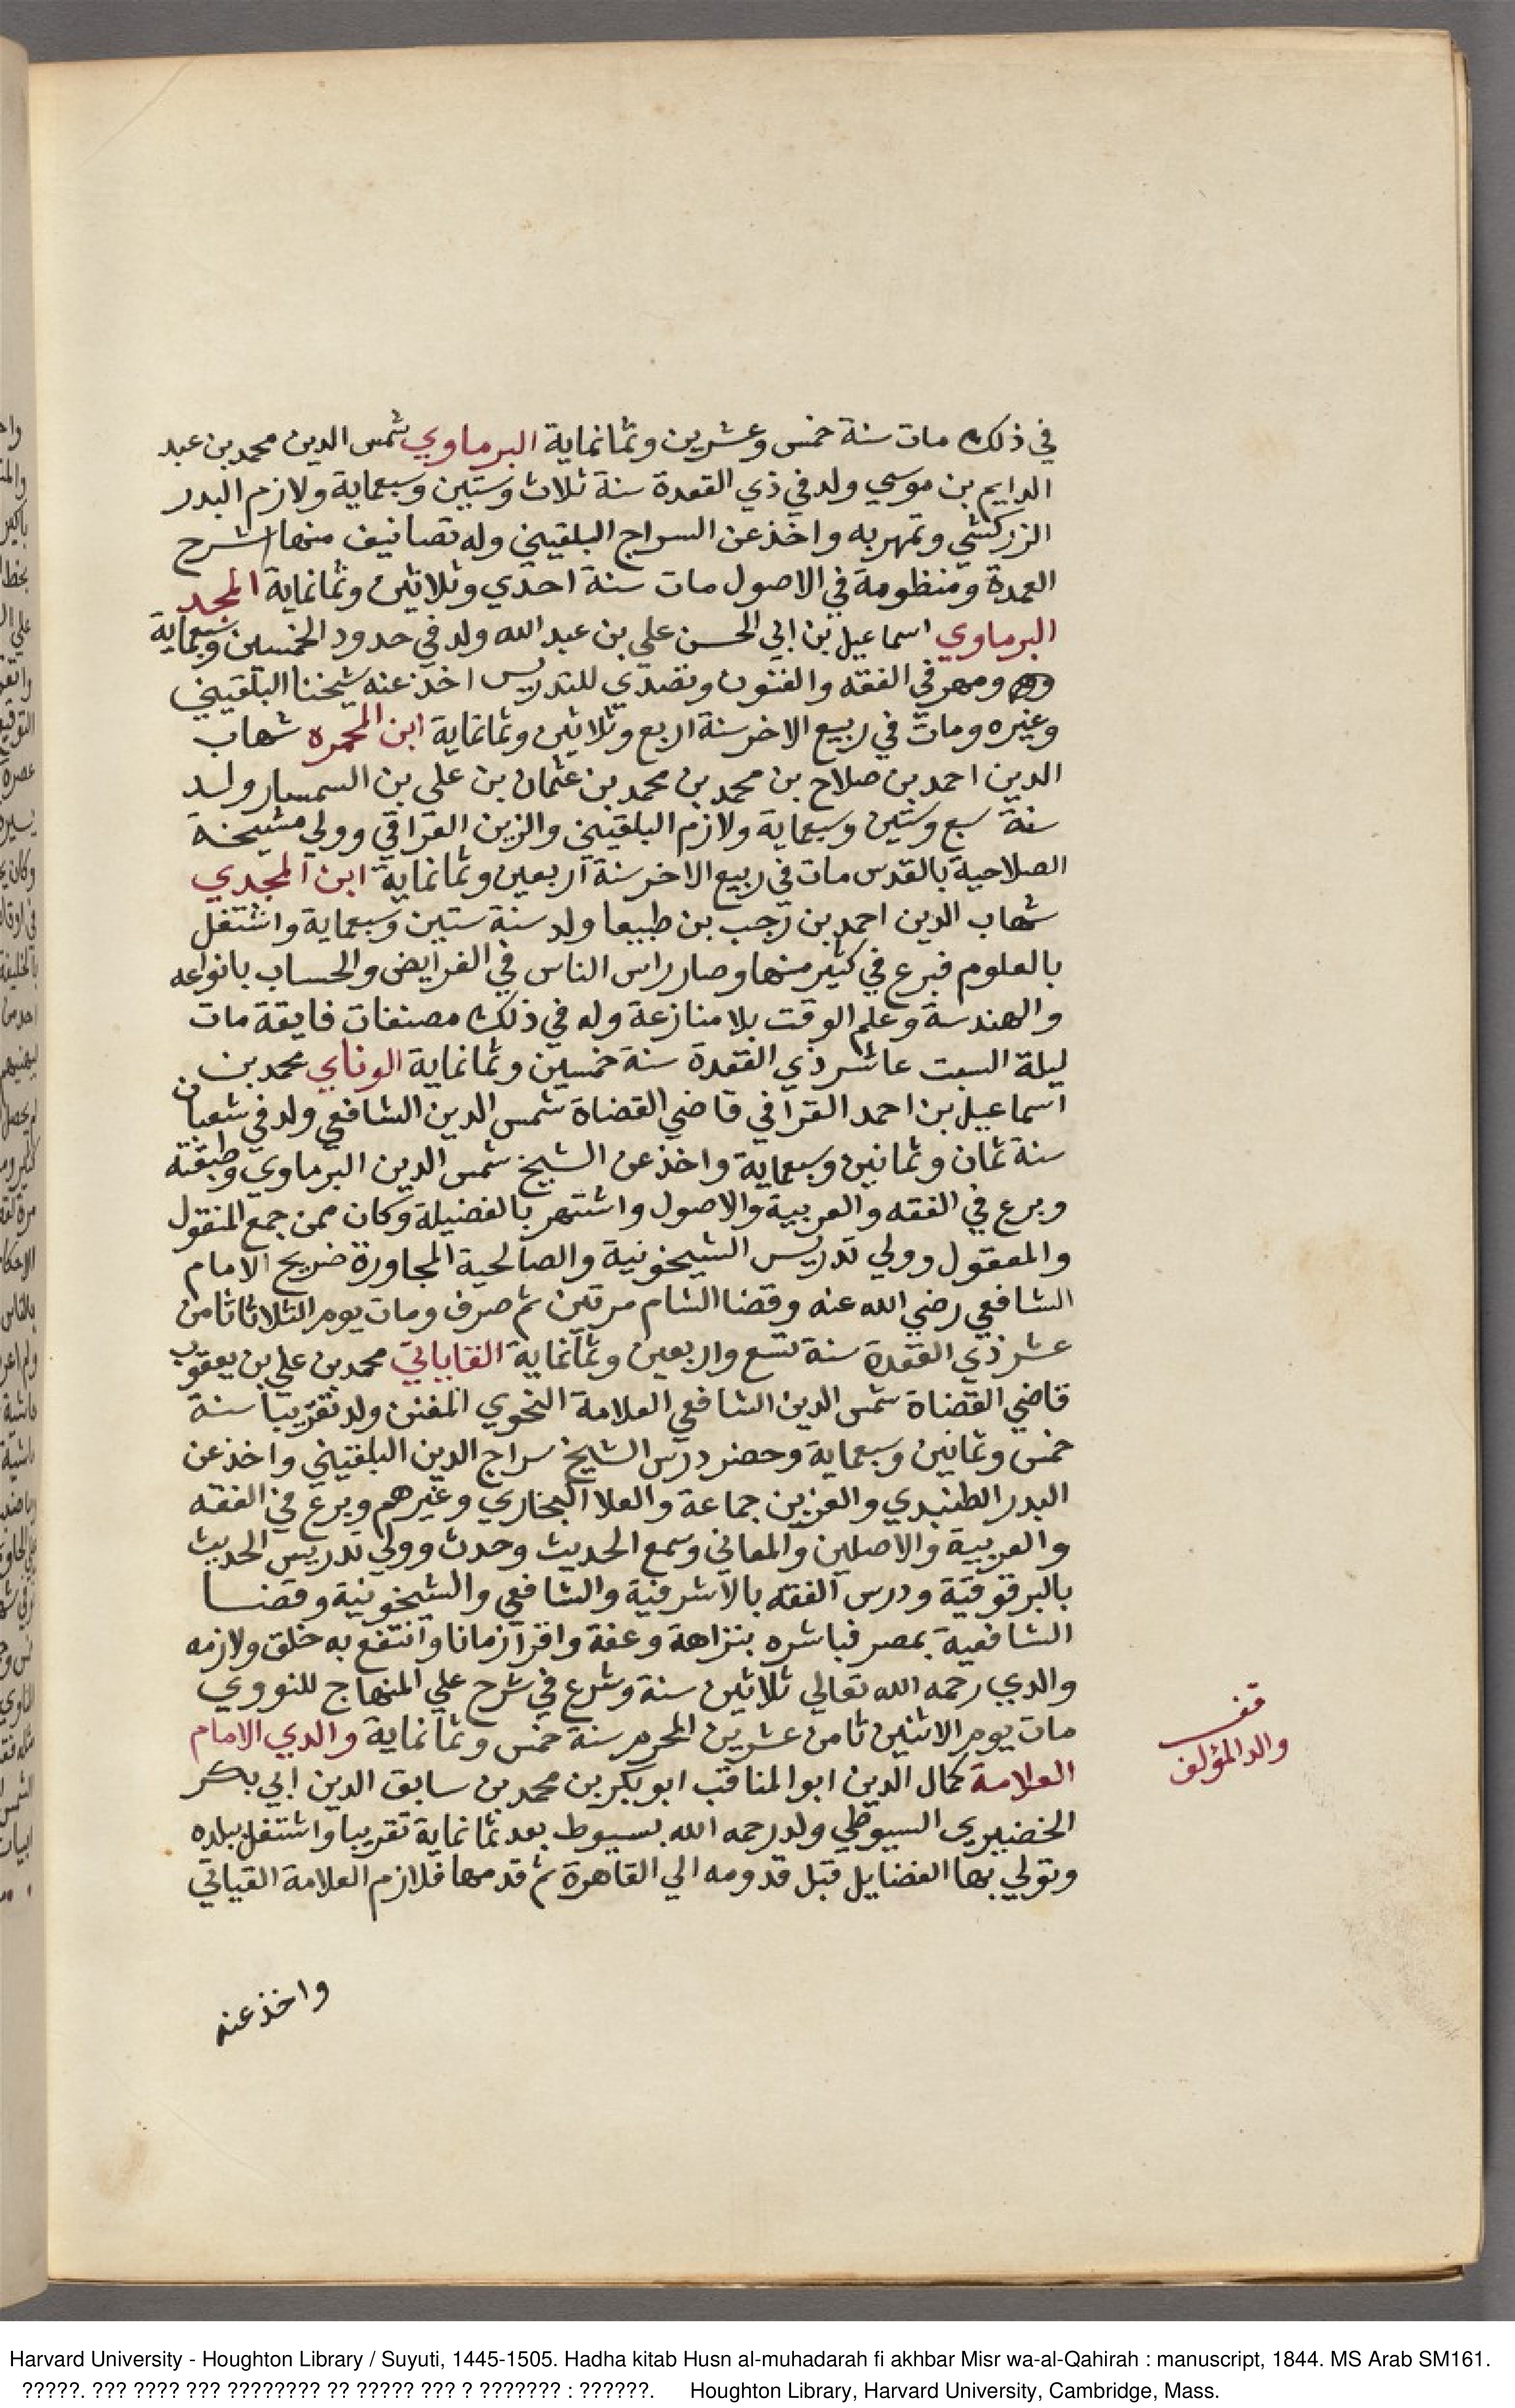 في ذلك مات سنة خمس وعشرين وثمانماية البرماوي شمس الدين محمد بن عبد
الدايم بن موسي ولد في ذي القعدة سنة ثلاث وستين وسبعماية ولازم البدر
الزركشي وتمهر به واخذ عن السراج البلقيني وله تصانيف منها شرح
العمدة ومنظومة في الاصول مات سنة احدي وثلاثين وثمانماية المجد
البرماوي اسماعيل بن ابي الحسن علي بن عبد الله ولد في حدود الخمسين وسبعماية
ومهر في الفقه والفنون وتصدي للتدريس اخذ عنه شيخنا البلقيني
وغيره ومات في ربيع الاخر سنة اربع وثلاثين وثمانماية ابن المحمره شهاب
الدين احمد بن صلاح بن محمد بن محمد بن عثمان بن علي بن السمسار ولد
سنة سبع وستين وسبعماية ولازم البلقيني والزين العراقي وولي مشيخة
الصلاحية بالقدس مات في ربيع الاخر سنة اربعين وثمانماية ابن المجدي
شهاب الدين احمد بن رجب بن طبيعا ولد سنة ستين وسبعماية واشتغل
بالعلوم فبرع في كثير منها وصار راس الناس في الفرايض والحساب بانواعه
والهندسة وعلم الوقت بلا منازعة وله في ذلك مصنفات فايقة مات
ليلة السبت عاشر ذي القعدة سنة خمسين وثمانماية الوناي محمد بن
اسماعيل بن احمد القرافي قاضي القضاة شمس الدين الشافعي ولد في شعبان
سنة ثمان وثمانين وسبعماية واخذ عن الشيخ شمس الدين البرماوي وطبقته
وبرع في الفقه والعربية والاصول واشتهر بالفضيلة وكان ممن جمع المنقول
والمعقول وولي تدريس الشيخونية والصالحية المجاورة ضريح الامام
الشافعي رضي الله عنه وقضا الشام مرتين ثم صرف ومات يوم الثلاثا ثامن
عشر ذي القعدة سنة تسع واربعين وثمانماية القاياتي محمد بن علي بن يعقوب
قاضي القضاة شمس الدين الشافعي العلامة النحوي المفنن ولد تقريبا سنة
خمس وثمانين وسبعماية وحضر درس الشيخ سراج الدين البلقيني واخذ عن
البدر الطنبدي والعز بن جماعة والعلا البخاري وغيرهم وبرع في الفقه
والعربية والاصلين والمعاني وسمع الحديث وحدث وولي تدريس الحديث
بالبرقوقية ودرس الفقه بالاشرفية والشافعي والشيخونية وقضا
الشافعية بمصر فباشره بنزاهة وعفة واقرا زمانا وانتفع به خلق ولازمه
والدي رحمه الله تعالي ثلاثين سنة وشرع في شرح علي المنهاج للنووي
مات يوم الاثنين ثامن عشرين المحرم سنة خمس وثمانماية والدي الامام
العلامة كمال الدين ابو المناقب ابو بكر بن محمد بن سابق الدين ابي بكر
الخضيري السيوطي ولد رحمه الله بسيوط بعد ثمانماية تقريبا واشتغل ببلده
وتولي بها الفضايل قبل قدومه الي القاهرة ثم قدمها فلازم العلامة القياتي
واخذ عنه
قف
والد المؤلف
Harvard University - Houghton Library / Suyuti, 1445-1505. Hadha kitab Husn al-muhadarah fi akhbar Misr wa-al-Qahirah : manuscript, 1844. MS Arab SM161.
?????. ??? ???? ??? ???????? ?? ????? ??? ? ??????? : ??????. Houghton Library, Harvard University, Cambridge, Mass.